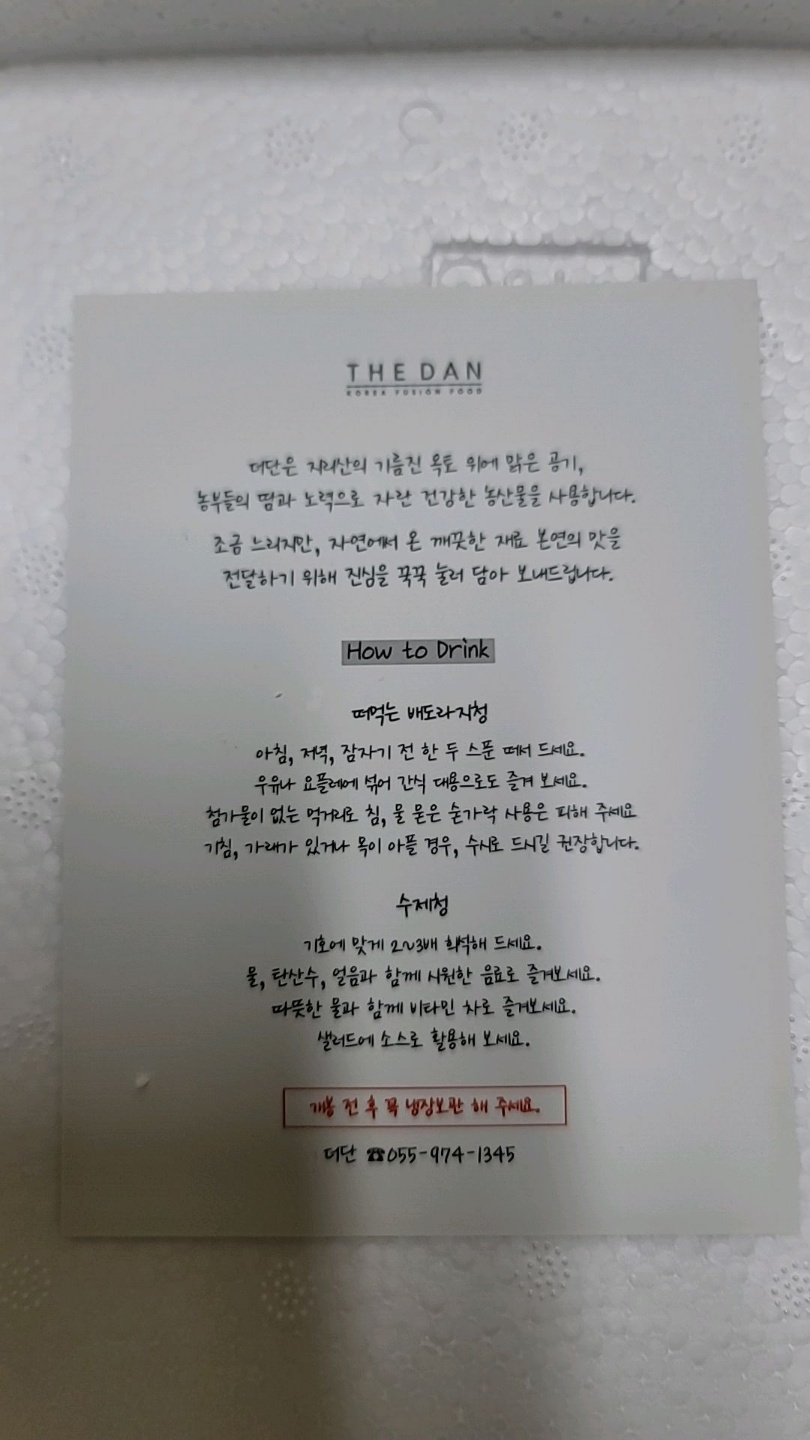 THE DAN
KOREA FUSION FOOD
더단은 지리산의 기름진 옥토 위에 맑은 공기,
농부들의 땀과 노력으로 자란 건강한 농산물을 사용합니다.
조금 느리지만, 자연에서 온 깨끗한 재료 본연의 맛을
전달하기 위해 진심을 꾹꾹 눌러 담아 보내드립니다.
How to Drink
떠먹는 배도라지청
아침, 저녁, 잠자기 전 한 두 스푼 떠서 드세요.
우유나 요플레에 섞어 간식 대용으로도 즐겨 보세요.
첨가물이 없는 먹거리로 침, 물 묻은 숟가락 사용은 피해 주세요
기침, 가래가 있거나 목이 아플 경우, 수시로 드시길 권장합니다.
수제청
기호에 맞게 2~3배 희석해 드세요.
물, 탄산수, 얼음과 함께 시원한 음료로 즐겨보세요.
따뜻한 물과 함께 비타민 차로 즐겨보세요.
샐러드에 소스로 활용해 보세요.
개봉 전 후 꼭 냉장보관 해 주세요.
더단 ☎055-974-1345